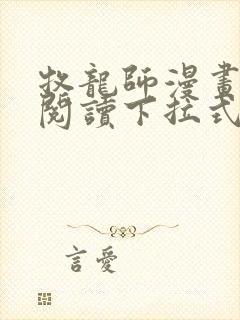 牧龍師漫畫
閱讀下拉式
言愛